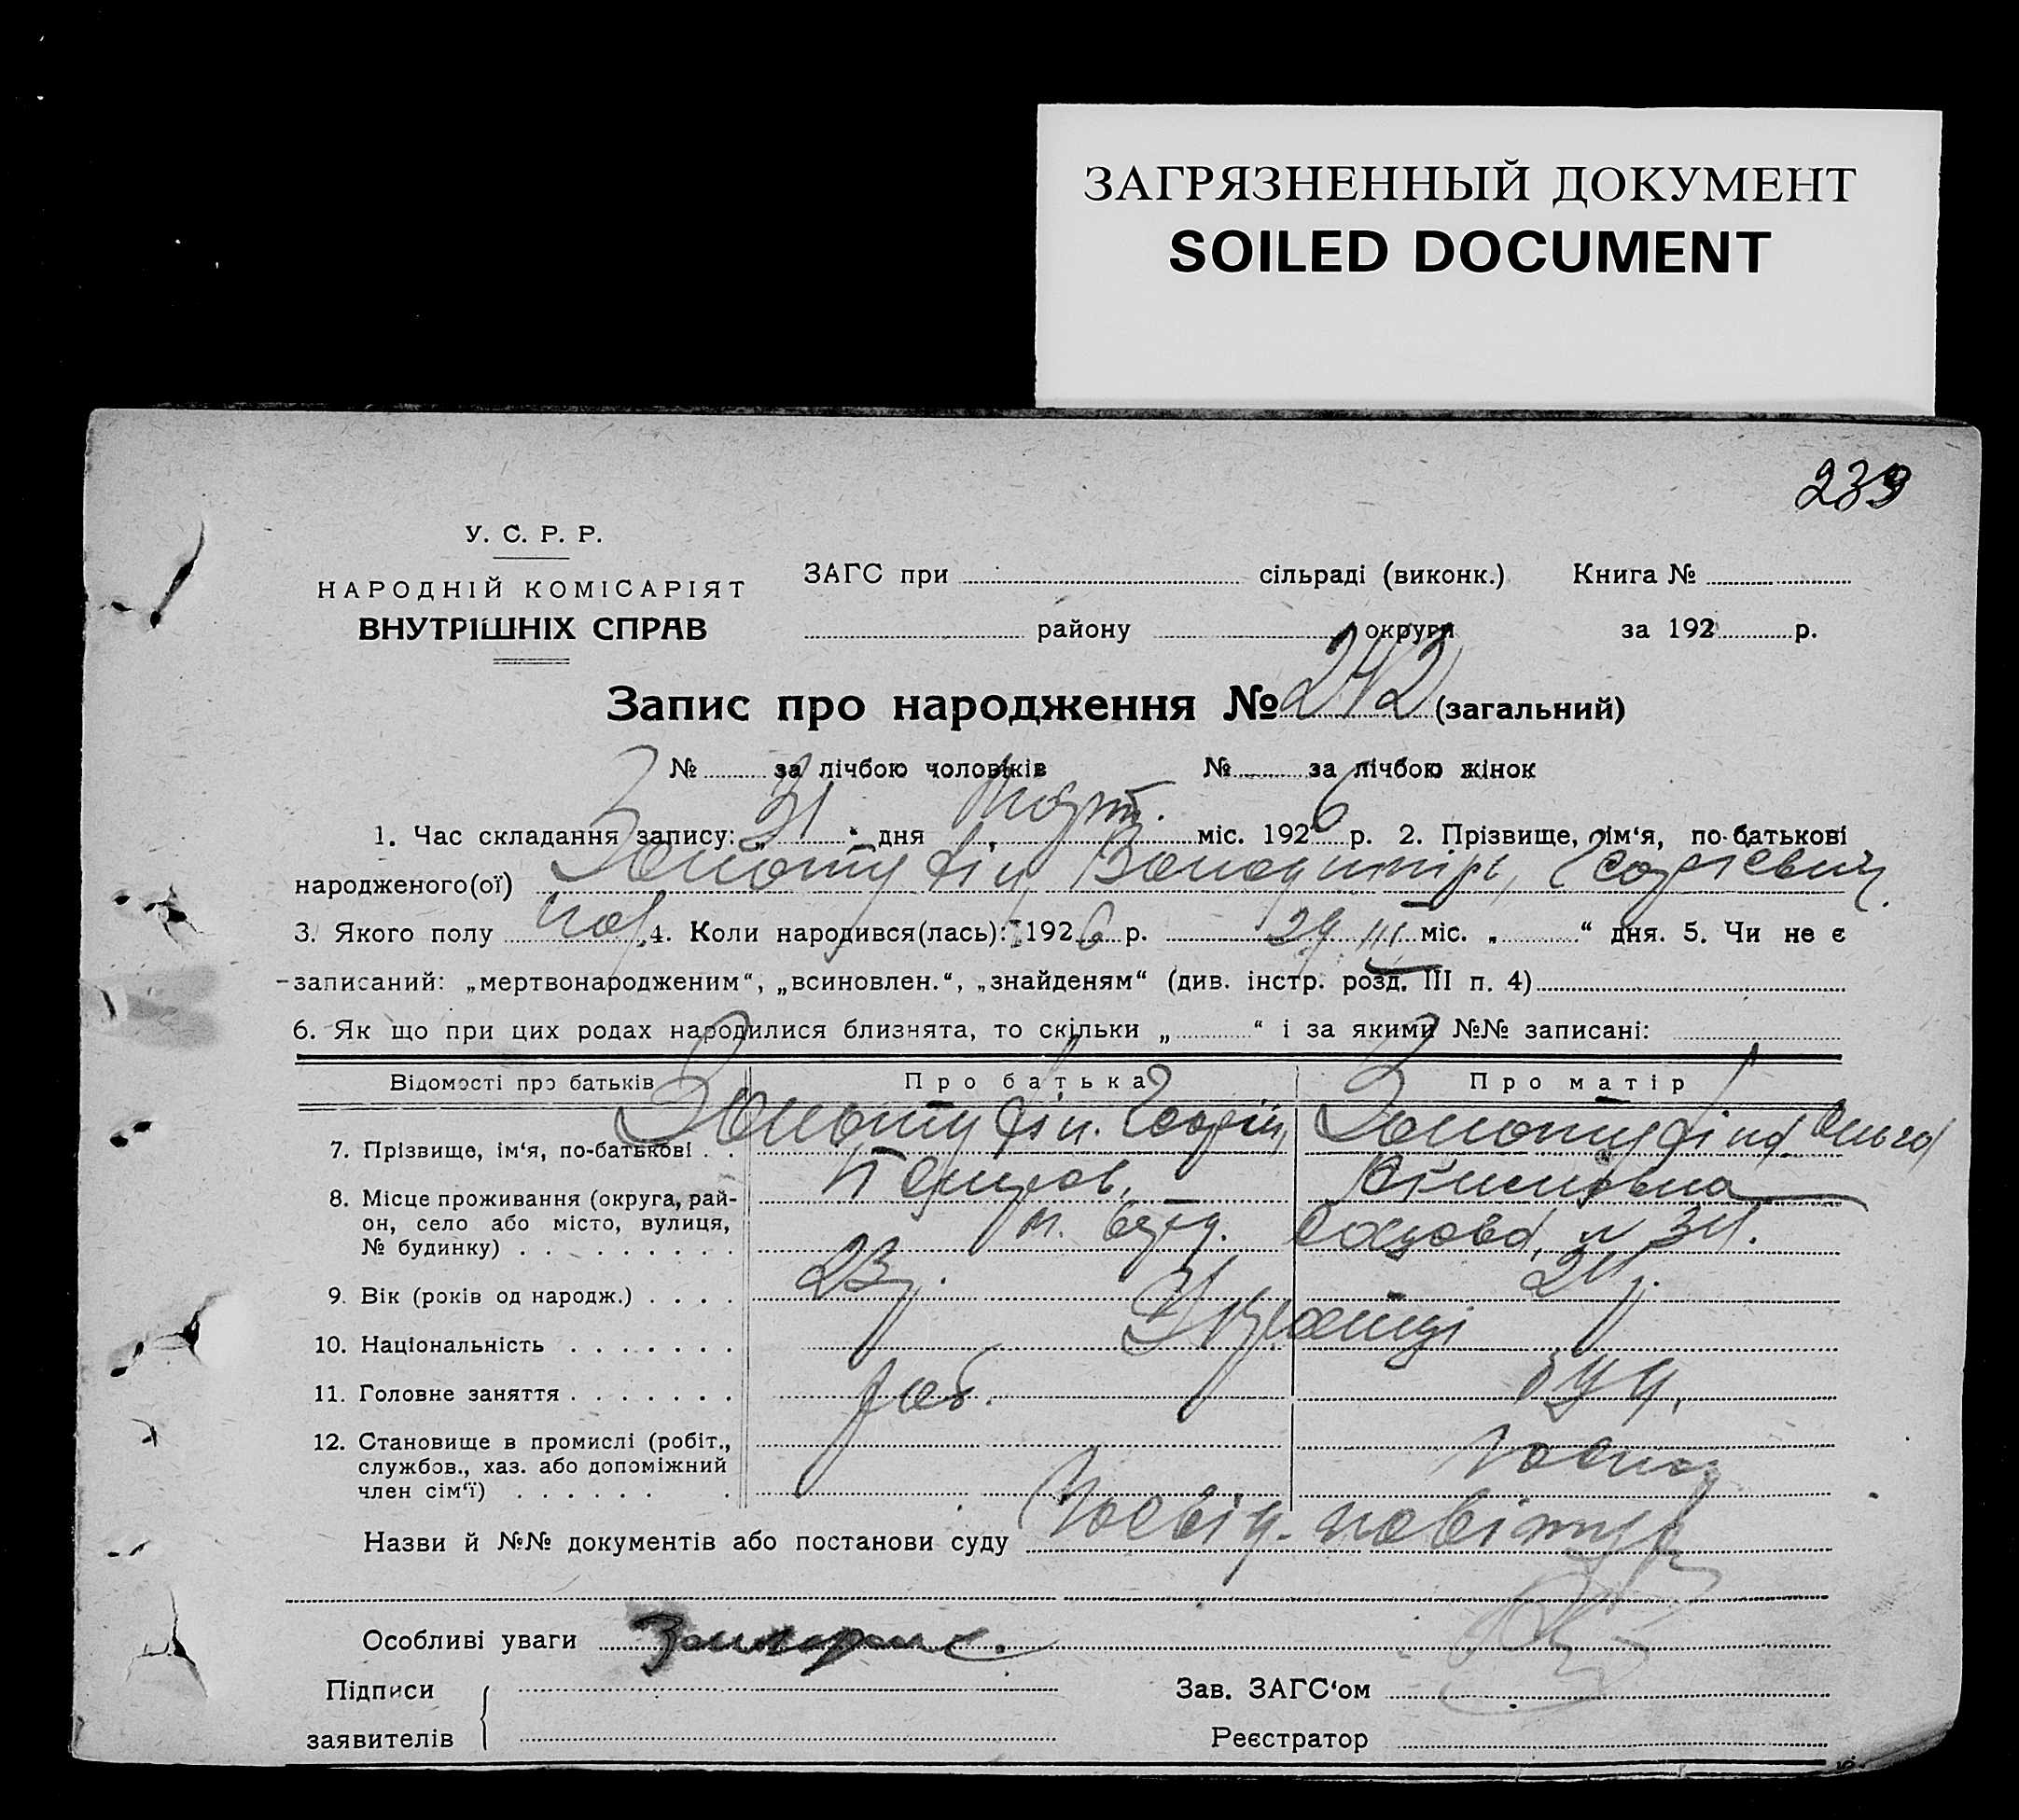 ЗАГРЯЗНЕННЫЙ ДОКУМЕНТ
SOILED DOCUMENT
239
У. С. Р. Р.
НАРОДНІЙ КОМІСАРІЯТ
ВНУТРІШНІХ СПРАВ
ЗАГС при сільраді (виконк.) Книга №
району округи за 192 р.
Запис про народження № 242 (загальний)
№ за лічбою чоловіків № за лічбою жінок
1. Час складання запису: „31 дня март. міс. 1926 р. 2. Прізвище, ім‘я, по-батькові
народженого(ої) Золотухін Володимір Георгієвич
3. Якого полу чол. 4. Коли народився(лась): 1926 р. 29 III міс. „ “ дня. 5. Чи не є
записаний: „мертвонародженим“, „всиновлен.“, „знайденям“ (див. інстр. розд. III п. 4)
6. Як що при цих родах народилися близнята, то скільки „ “ і за якими №№ записані:
Відомості про батьків Про батька Про матір
7. Прізвище, ім‘я, по-батькові . . Золотухін Георгій Золотухіна Ольга
8. Місце проживання (округа, рай-
он, село або місто, вулиця,
№ будинку) . . . . . . . . .
9. Вік (років од народж.) . . . . 23 р. 24 р.
10. Національність . . . . . . . Українці
11. Головне заняття . . . . . . . роб.
12. Становище в промислі (робіт.,
службов., хаз. або допоміжний
член сім‘ї) . . . . . . .
Назви й №№ документів або постанови суду Посвід.
Особливі уваги
Підписи Зав. ЗАГС‘ом
заявителів Реєстратор